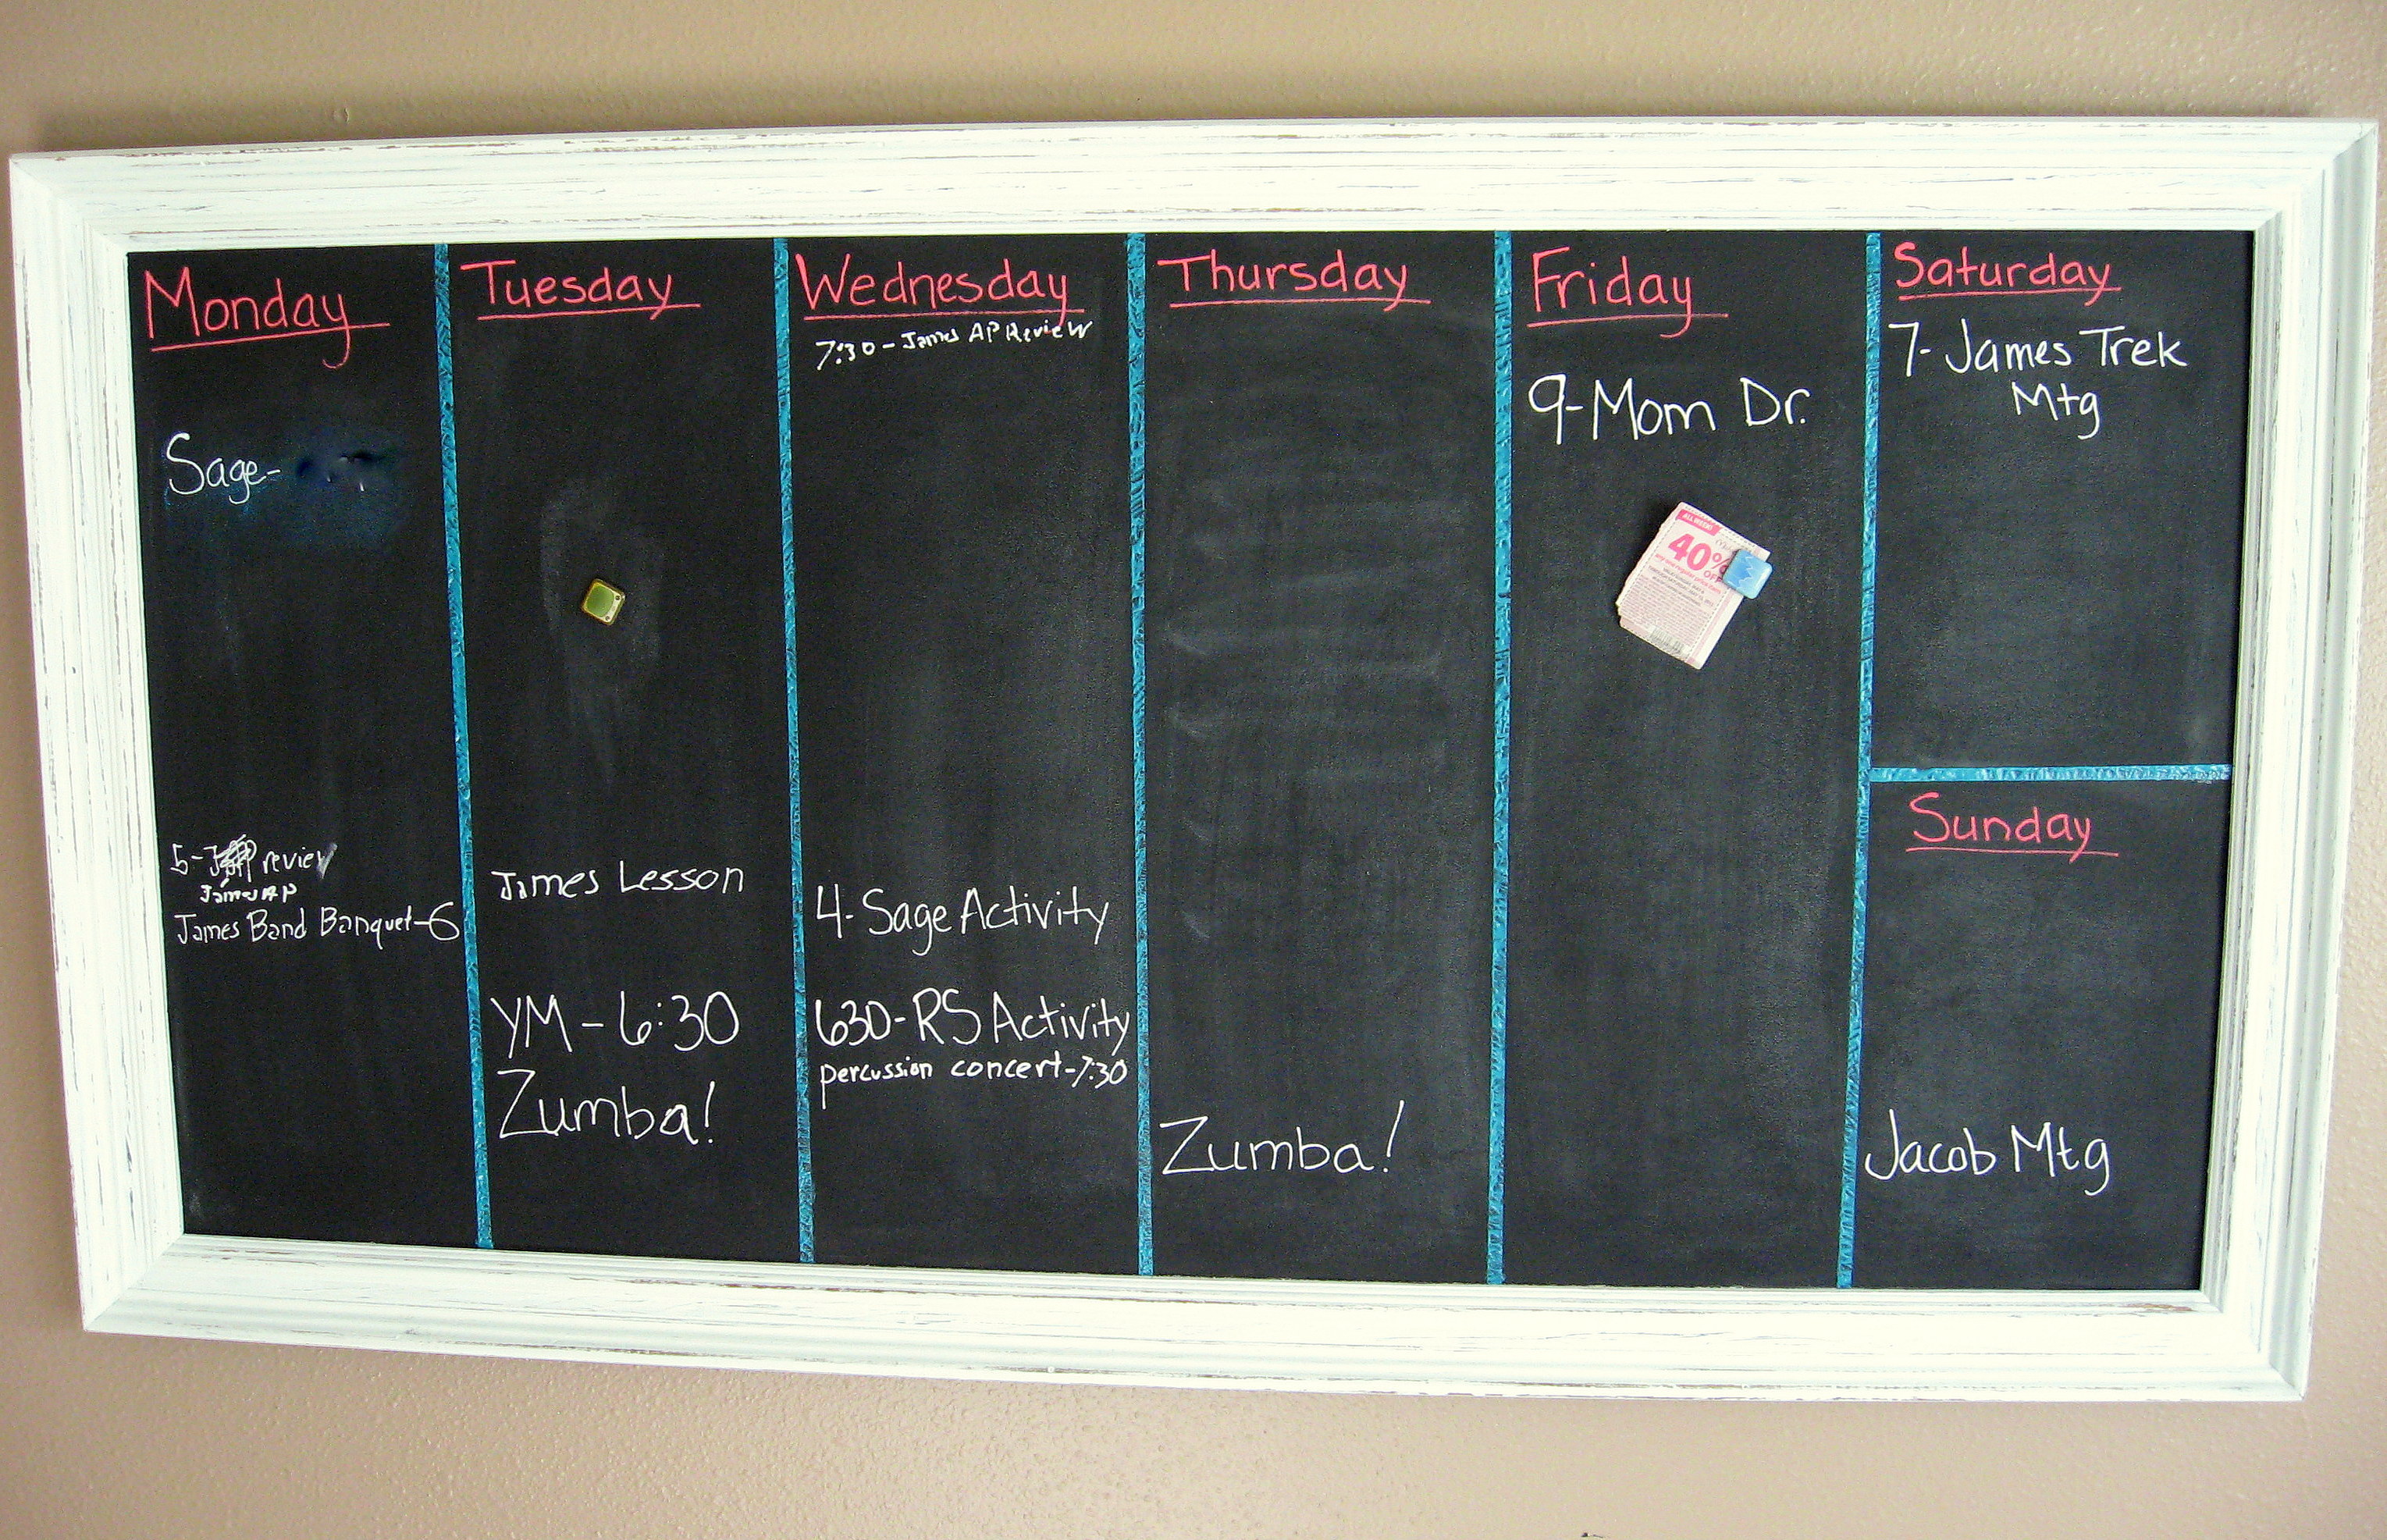 Monday
Sage-
5- review
James AP
James Band Banquet-6
Tuesday
James Lesson
YM - 6:30
Zumba!
Wednesday
7:30 - James AP Review
4- Sage Activity
630- RS Activity
percussion concert-7:30
Thursday
Zumba!
Friday
9- Mom Dr.
ALL WEEK!
40%
OFF
Saturday
7- James Trek
Mtg
Sunday
Jacob Mtg